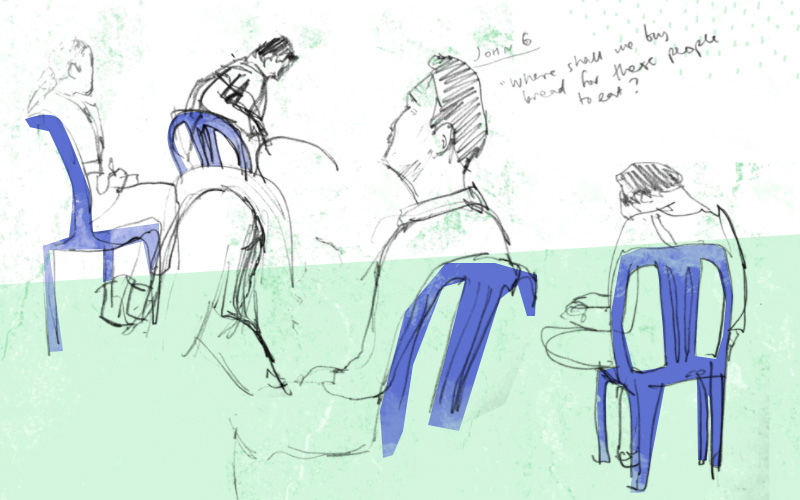 John 6
"Where shall we buy
bread for these people
to eat?